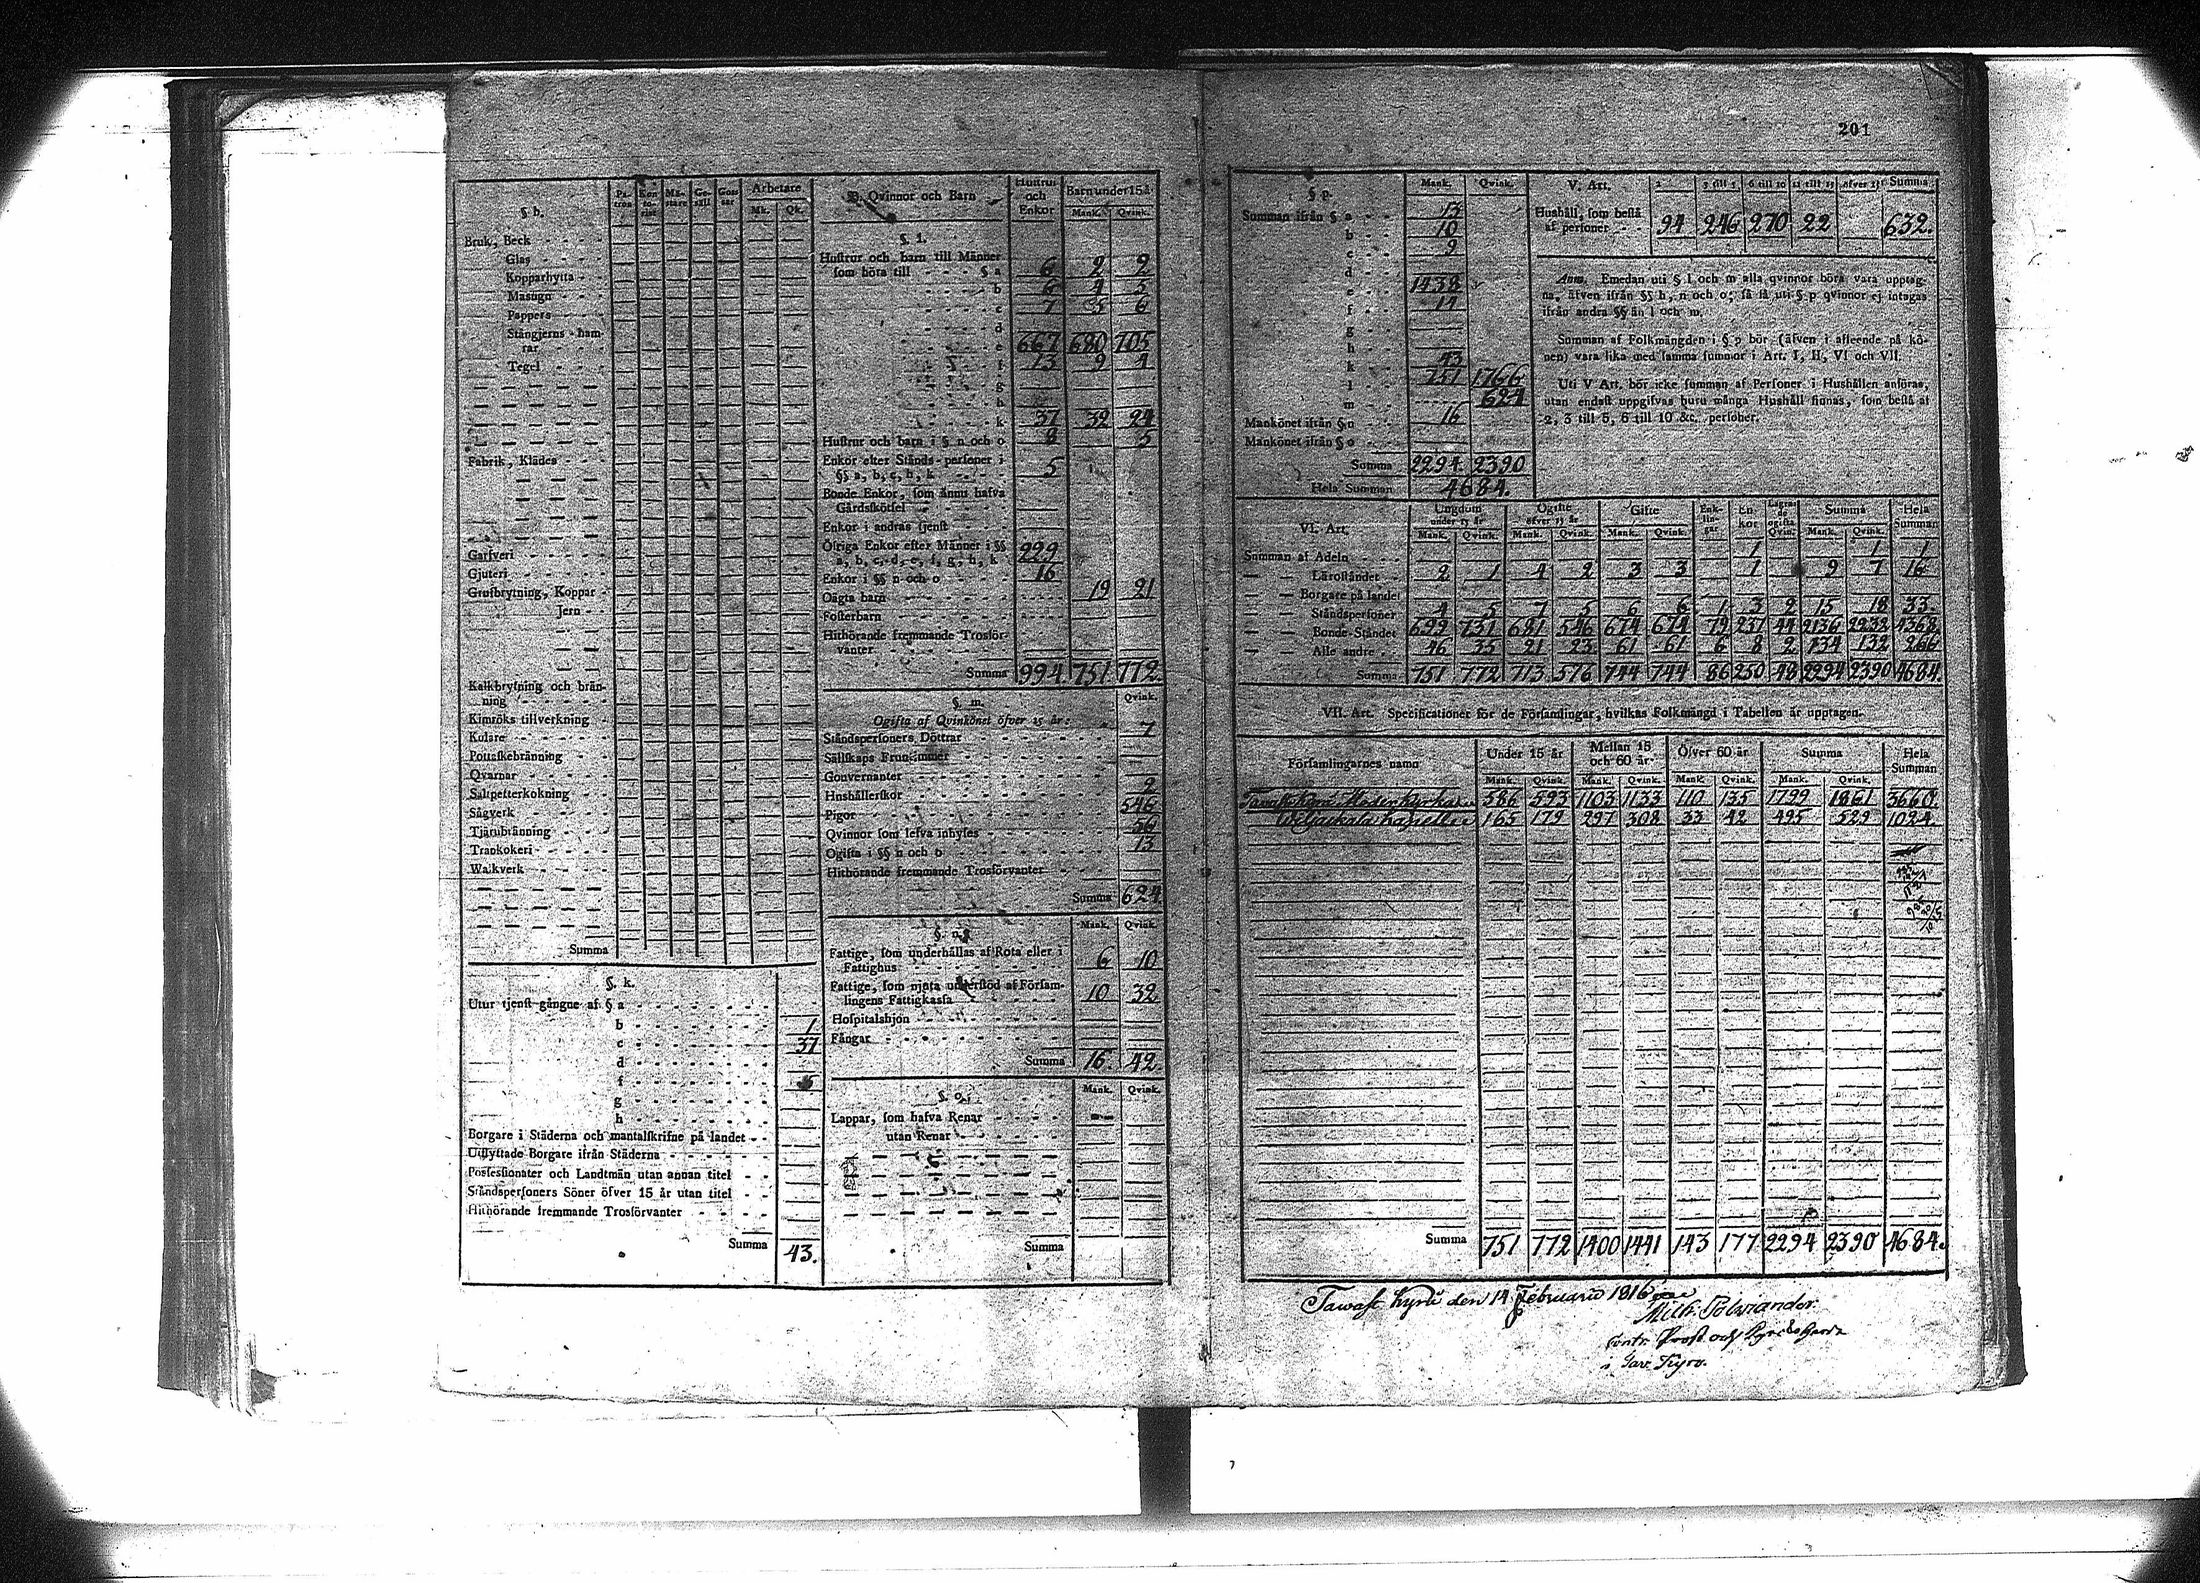 201
§ h.
Pa-
tron
Kon-
to-
rist
Mä-
stare
Ge-
säll
Goss
ar
Arbetare
Mk. Qk.
Bruk, Beck
Glas
Kopparhytta
Masugn
Pappers
Stångjerns-ham-
rar
Tegel
Fabrik, Klädes
Garfveri
Gjuteri
Grufbrytning, Koppar
Jern
Kalkbrytning och brän-
ning
Kimröks tillverkning
Kolare
Pottaskebränning
Qvarnar
Saltpetterkokning
Sågverk
Tjärubränning
Trankokeri
Walkverk
Summa
§. k.
Utur tjenst gångne af § a
b 1
c 37
d
f 5
g
h
Borgare i Städerna och mantalskrifne på landet
Utflyttade Borgare ifrån Städerna
Possessionater och Landtmän utan annan titel
Ståndspersoners Söner öfver 15 år utan titel
Hithörande fremmande Trosförvanter
Summa 43.
B. Qvinnor och Barn
Hustrur
och
Enkor
Barn under 15 år
Mank. Qvink.
§. l.
Hustrur och barn till Männer
som höra till § a 6 2 2
b 6 4 5
c 7 5 6
d
e 667 680 705
f 13 9 4
g
h
k 37 32 24
Hustrur och barn i § n och o 8 5
Enkor efter Stånds-personer i
§§ a, b, c, h, k 5
Bonde Enkor, som ännu hafva
Gårdsskötsel
Enkor i andras tjenst
Öfriga Enkor efter Männer i §§
a, b, c, d, e, f, g, h, k 229
Enkor i §§ n och o 16
Oägta barn 19 21
Fosterbarn
Hithörande fremmande Trosför-
vanter
Summa 994. 751. 772.
§. m. Qvink.
Ogifta af Qvinkönet öfver 15 år:
Ståndspersoners Döttrar 7
Sällskaps Fruntimmer
Gouvernanter
Hushållerskor 2
Pigor 546
Qvinnor som lefva inhyses 56
Ogifta i §§ n och o 13
Hithörande fremmande Trosförvanter
Summa 624.
§. n. Mank. Qvink.
Fattige, som underhållas af Rota eller i
Fattighus 6 10
Fattige, som njuta understöd af Försam-
lingens Fattigkassa 10 32
Hospitalshjon
Fångar
Summa 16. 42.
§. o. Mank. Qvink.
Lappar, som hafva Renar
utan Renar
Summa
§ p. Mank. Qvink.
Summan ifrån § a 13
b 10
c 9
d
e 1438
f 14
g
h
k 43
l 751 1766
m 624
Mankönet ifrån § n 16
Mankönet ifrån § o
Summa 2294. 2390
Hela Summan 4684.
V. Art. 2 3 till 5 6 till 10 11 till 15 öfver 15 Summa
Hushåll, som bestå
af personer 94 246 270 22 632.
Anm. Emedan uti § l och m alla qvinnor böra vara upptag-
na, äfven ifrån §§ h, n och o, så få uti § p qvinnor ej intagas
ifrån andra §§ än l och m.
Summan af Folkmängden i § p bör (äfven i afseende på kö-
nen) vara lika med samma summor i Art. I, II, VI och VII.
Uti V Art. bör icke summan af Personer i Hushållen anföras,
utan endast uppgifvas huru många Hushåll finnas, som bestå af
2, 3 till 5, 6 till 10 &c. personer.
VI. Art.
Ungdom
under 15 år
Ogifte
öfver 15 år
Gifte
Enk-
lin-
gar
En-
kor
Lägra-
de
ogifta
Qvin.
Summa
Hela
Summan
Mank. Qvink. Mank. Qvink. Mank. Qvink. Mank. Qvink.
Summan af Adeln 1 1 1
Lärostándet 2 1 4 2 3 3 1 9 7 16
Borgare på landet
Ståndspersoner 4 5 7 5 6 6 1 3 2 15 18 33.
Bonde-Ståndet 699 731 681 546 674 674 79 237 44 2136 2232 4368
Alle andre 46 35 21 23 61 61 6 8 2 134 132 266
Summa 751 772 713 576 744 744 86 250 48 2294 2390 4684.
VII. Art. Specificationer för de Församlingar, hvilkas Folkmängd i Tabellen är upptagen.
Församlingarnes namn
Under 15 år
Mellan 15
och 60 år
Öfver 60 år
Summa
Hela
Summan
Mank. Qvink. Mank. Qvink. Mank. Qvink. Mank. Qvink.
Tavast Kyrö Moderkyrka 586 593 1103 1133 110 135 1799 1861 3660.
Wiljackala Capell 165 179 297 308 33 42 495 529 1024.
Summa 751 772 1400 1441 143 177 2294 2390 4684.
Tawast Kyrö den 14 Februarii 1816
Mich: Polviander.
Contr. Prost och Kyrckoherde
i Tav. Kyro.